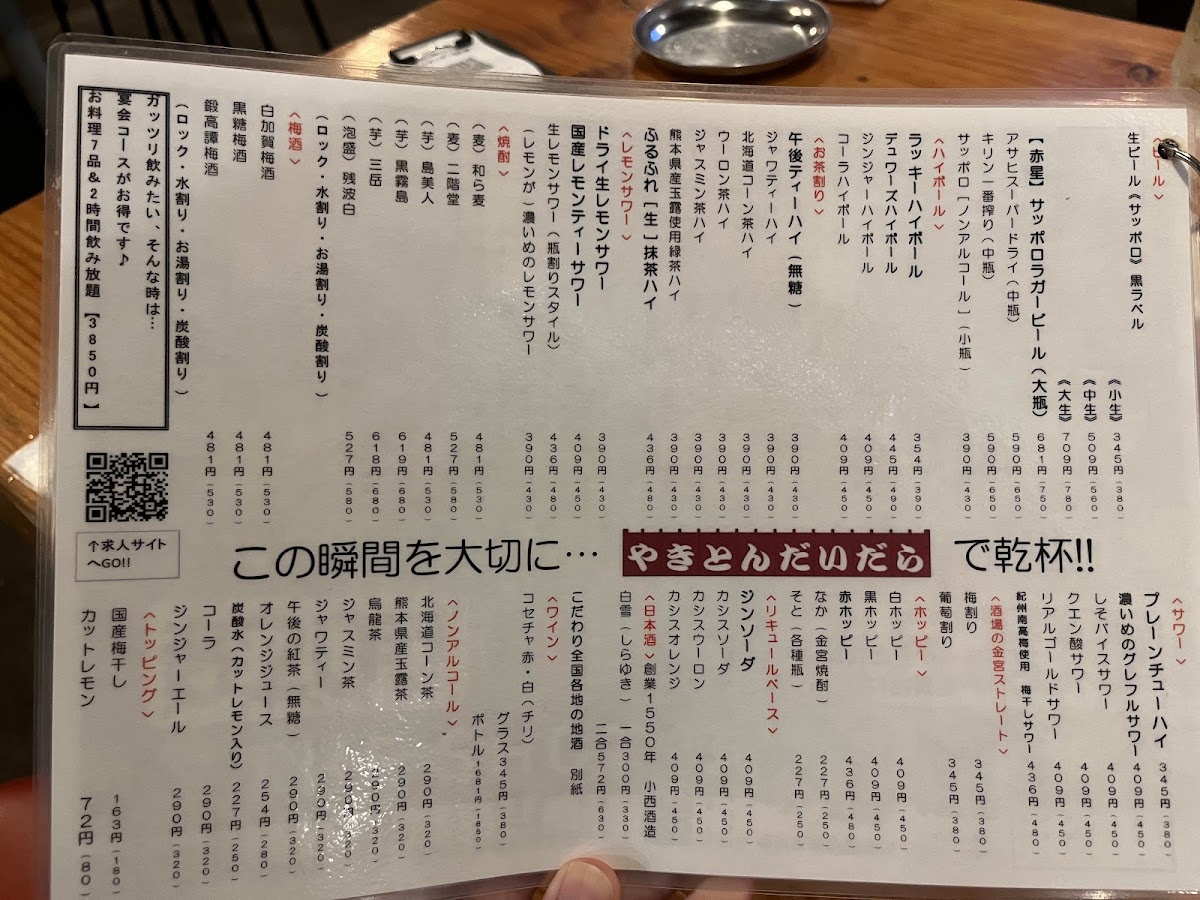 〈ビール〉
生ビール《サッポロ》黒ラベル
《小生》 345円(380)
《中生》 509円(560)
《大生》 709円(780)
【赤星】サッポロラガービール(大瓶) 681円(750)
アサヒスーパードライ(中瓶) 590円(650)
キリン一番搾り(中瓶) 590円(650)
サッポロ[ノンアルコール](小瓶) 390円(430)
〈ハイボール〉
ラッキーハイボール 354円(390)
デュワーズハイボール 445円(490)
ジンジャーハイボール 409円(450)
コーラハイボール 409円(450)
〈お茶割り〉
午後ティーハイ(無糖) 390円(430)
ジャワティーハイ 390円(430)
北海道コーン茶ハイ 390円(430)
ウーロン茶ハイ 390円(430)
ジャスミン茶ハイ 390円(430)
熊本県産玉露使用緑茶ハイ 390円(430)
ふるふれ[生]抹茶ハイ 436円(480)
〈レモンサワー〉
ドライ生レモンサワー 390円(430)
国産レモンティーサワー 409円(450)
生レモンサワー(瓶割りスタイル) 436円(480)
(レモンが)濃いめのレモンサワー 390円(430)
〈焼酎〉
(麦)和ら麦 481円(530)
(麦)二階堂 527円(580)
(芋)島美人 481円(530)
(芋)黒霧島 619円(680)
(芋)三岳 618円(680)
(泡盛)残波白 527円(580)
(ロック・水割り・お湯割り・炭酸割り)
〈梅酒〉
白加賀梅酒 481円(530)
黒糖梅酒 481円(530)
鍛高譚梅酒 481円(530)
(ロック・水割り・お湯割り・炭酸割り)
ガッツリ飲みたい、そんな時は…
宴会コースがお得です♪
お料理7品&2時間飲み放題【3850円】
↑求人サイト
へGO!!
この瞬間を大切に… やきとんだいだら で乾杯!!
〈サワー〉
プレーンチューハイ 345円(380)
濃いめのグレフルサワー 409円(450)
しそバイスサワー 409円(450)
クエン酸サワー 409円(450)
リアルゴールドサワー 409円(450)
紀州南高梅使用 梅干しサワー 436円(480)
〈酒場の金宮ストレート〉
梅割り 345円(380)
葡萄割り 345円(380)
〈ホッピー〉
白ホッピー 409円(450)
黒ホッピー 409円(450)
赤ホッピー 436円(480)
なか(金宮焼酎) 227円(250)
そと(各種瓶) 227円(250)
〈リキュールベース〉
ジンソーダ 409円(450)
カシスソーダ 409円(450)
カシスウーロン 409円(450)
カシスオレンジ 409円(450)
〈日本酒〉創業1550年 小西酒造
白雪(しらゆき) 一合300円(330)
二合572円(630)
こだわり全国各地の地酒 別紙
〈ワイン〉
コセチャ赤・白(チリ)
グラス345円(380)
ボトル1681円(1850)
〈ノンアルコール〉
北海道コーン茶 290円(320)
熊本県産玉露茶 290円(320)
烏龍茶 290円(320)
ジャスミン茶 290円(320)
ジャワティー 290円(320)
午後の紅茶(無糖) 290円(320)
オレンジジュース 254円(280)
炭酸水(カットレモン入り) 227円(250)
コーラ 290円(320)
ジンジャーエール 290円(320)
〈トッピング〉
国産梅干し 163円(180)
カットレモン 72円(80)